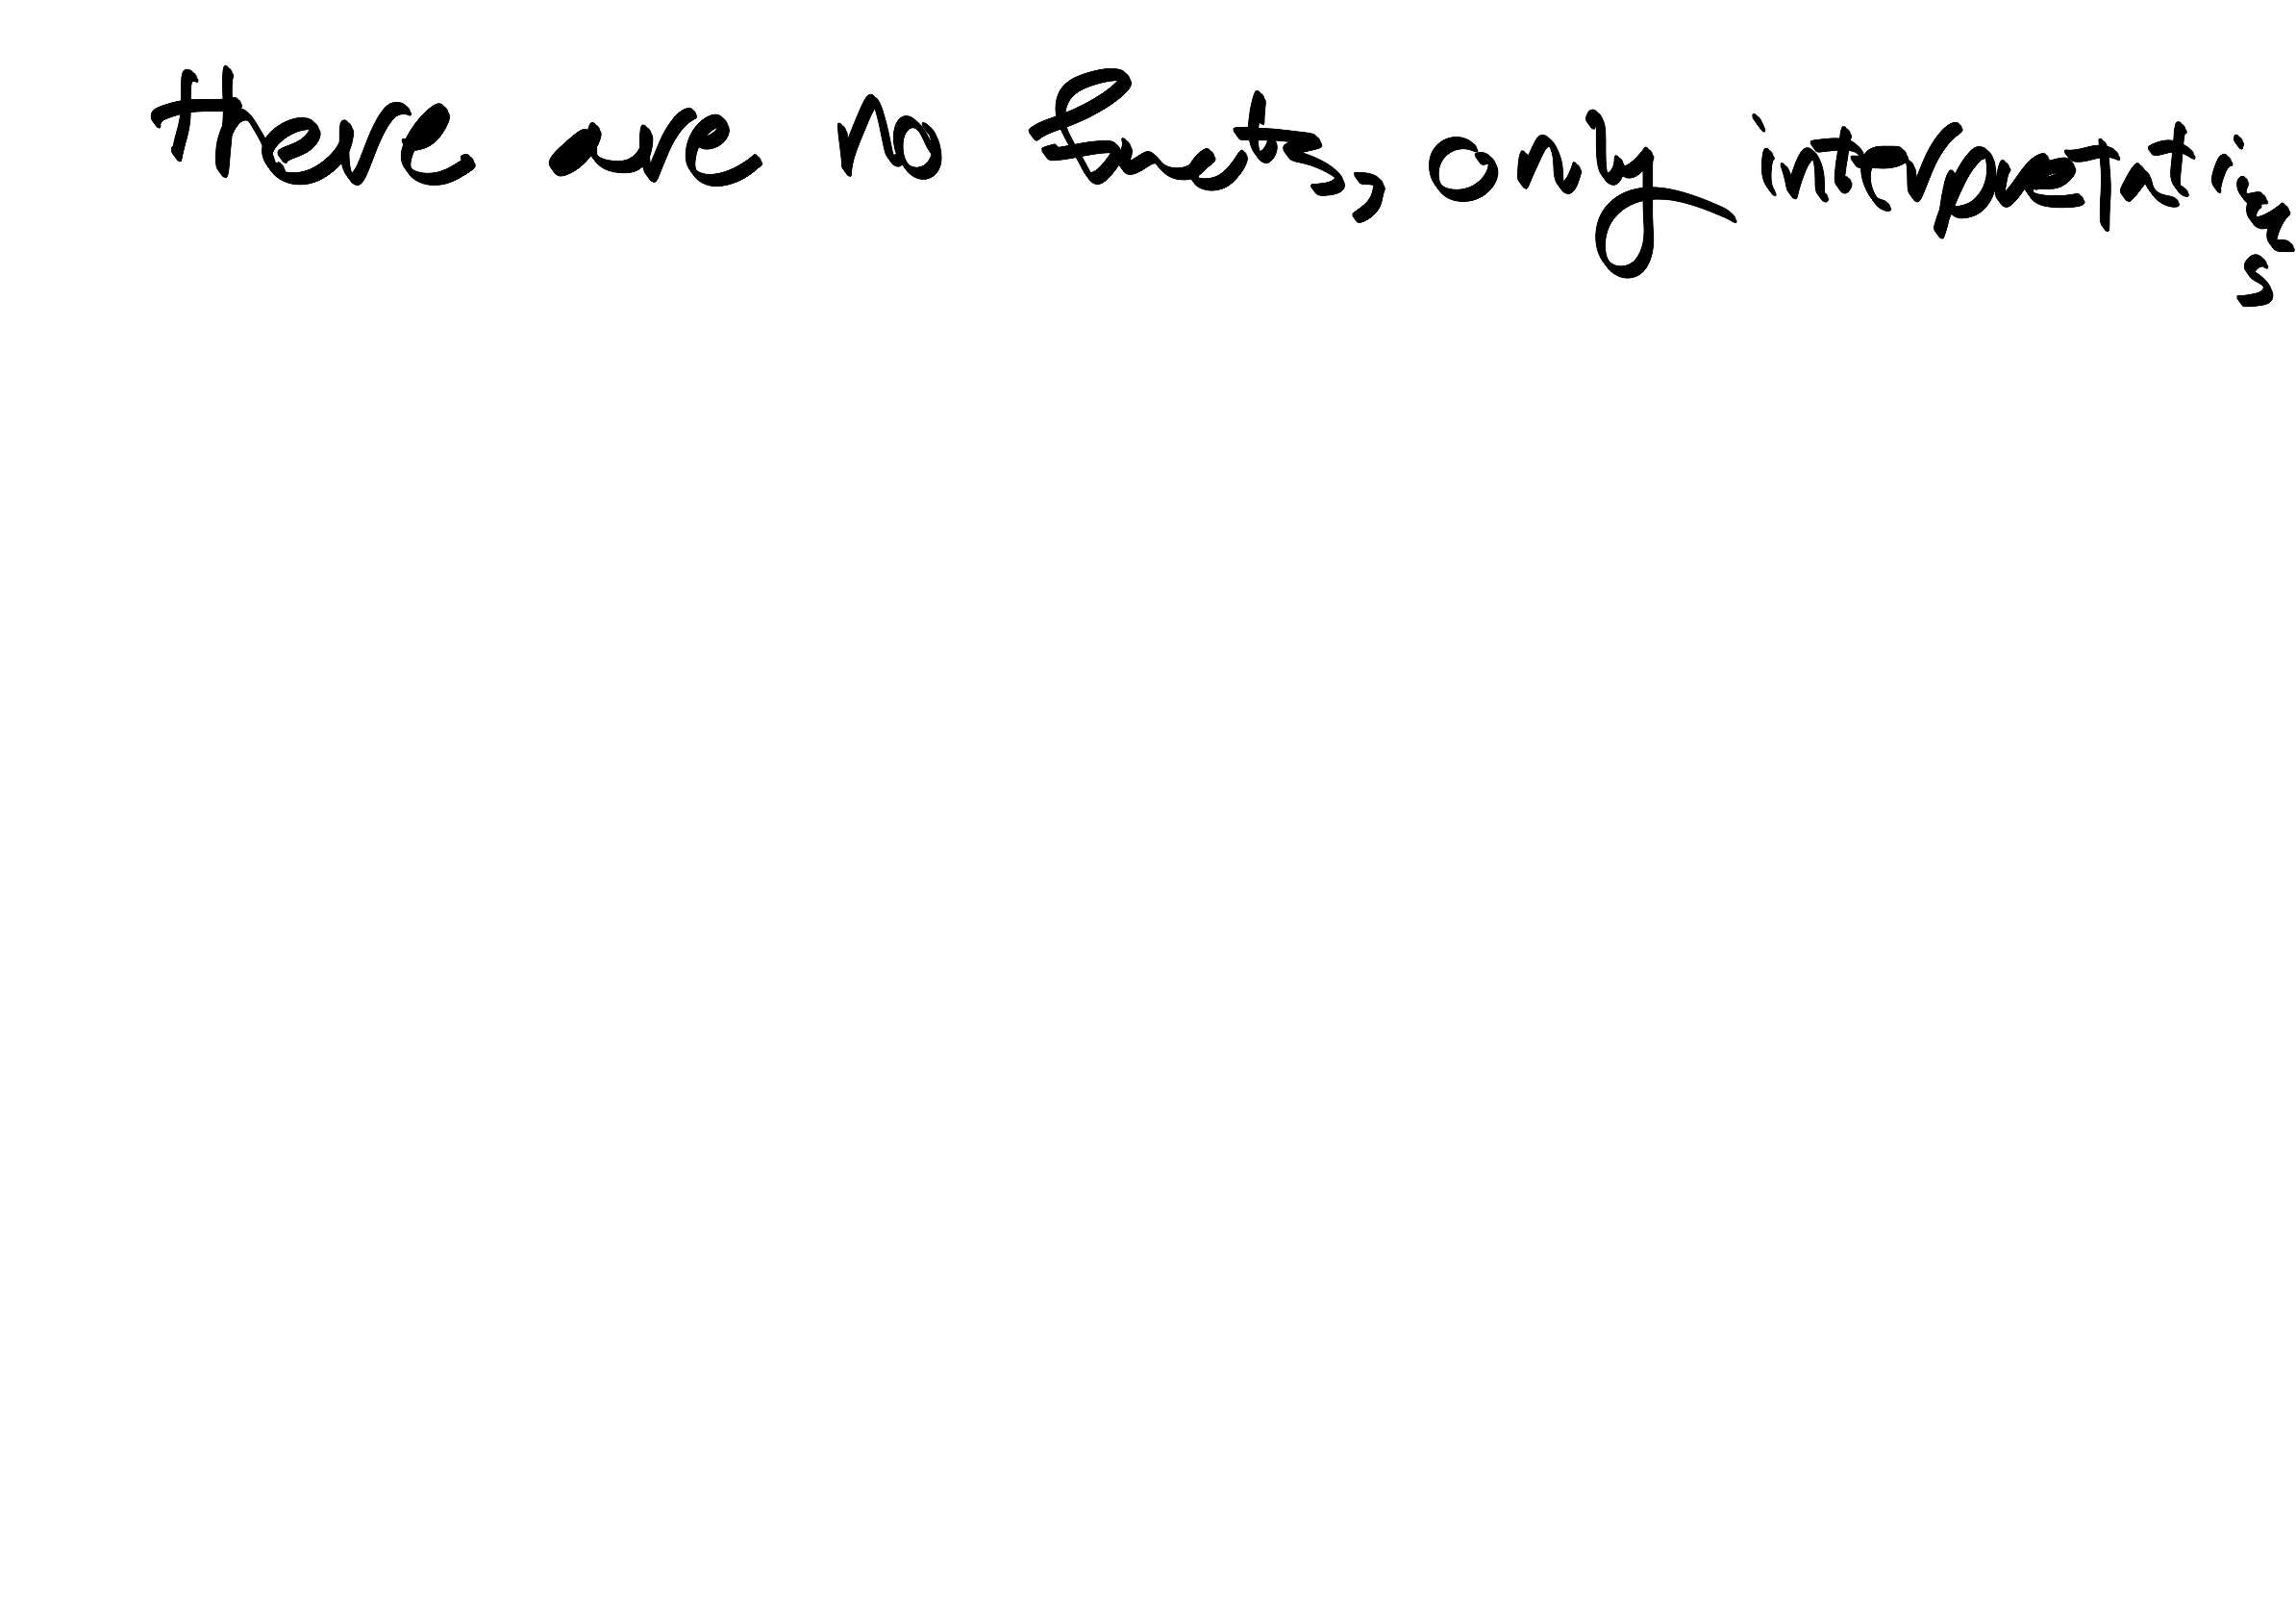 There are no facts, only interpretations